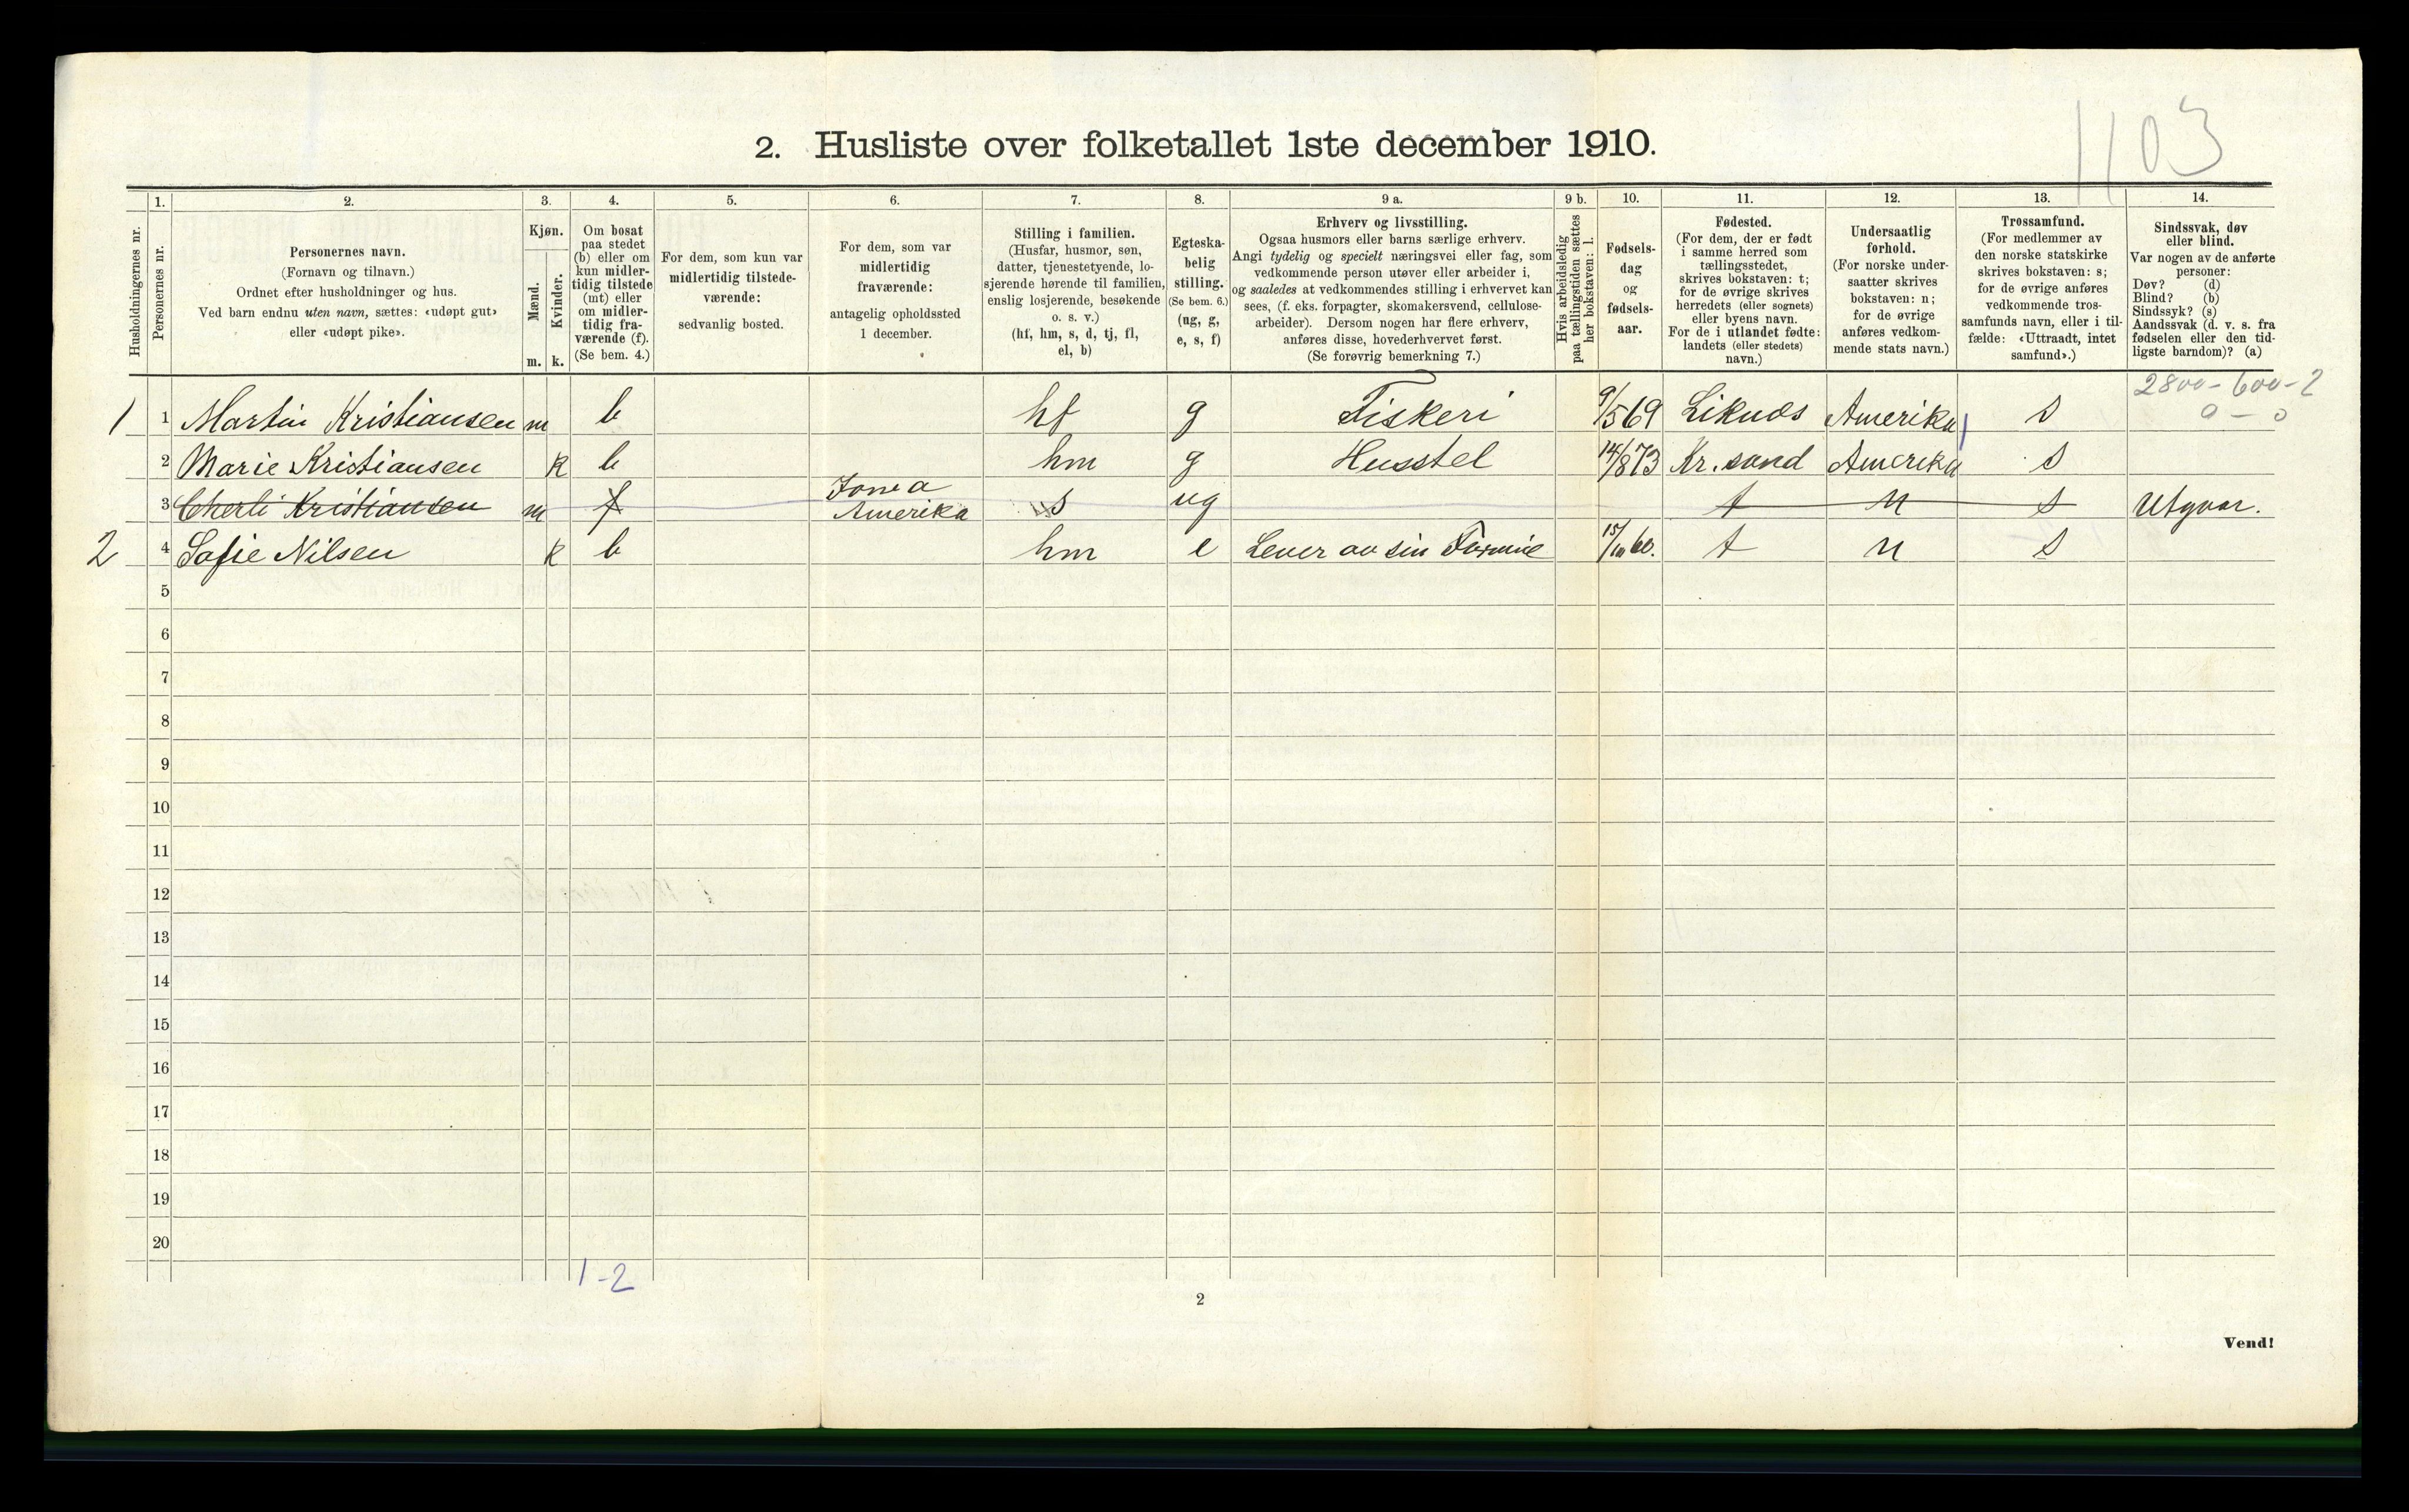 1103
2. Husliste over folketallet 1ste december 1910.
Husholdningernes nr.
1.
Personernes nr.
2.
Personernes navn.
(Fornavn og tilnavn.)
Ordnet efter husholdninger og hus.
Ved barn endnu uten navn, sættes: «udøpt gut»
eller «udøpt pike».
3.
Kjøn.
Mænd.
Kvinder.
m. k.
4.
Om bosat
paa stedet
(b) eller om
kun midler-
tidig tilstede
(mt) eller
om midler-
tidig fra-
værende (f).
(Se bem. 4.)
5.
For dem, som kun var
midlertidig tilstede-
værende:
sedvanlig bosted.
6.
For dem, som var
midlertidig
fraværende:
antagelig opholdssted
1 december.
7.
Stilling i familien.
(Husfar, husmor, søn,
datter, tjenestetyende, lo-
sjerende hørende til familien,
enslig losjerende, besøkende
o. s. v.)
(hf, hm, s, d, tj, fl,
el, b)
8.
Egteska-
belig
stilling.
(Se bem. 6.)
(ug, g,
e, s, f)
9 a.
Erhverv og livsstilling.
Ogsaa husmors eller barns særlige erhverv.
Angi tydelig og specielt næringsvei eller fag, som
vedkommende person utøver eller arbeider i,
og saaledes at vedkommendes stilling i erhvervet kan
sees, (f. eks. forpagter, skomakersvend, cellulose-
arbeider). Dersom nogen har flere erhverv,
anføres disse, hovederhvervet først.
(Se forøvrig bemerkning 7.)
9 b.
Hvis arbeidsledig
paa tællingstiden sættes
her bokstaven: l.
10.
Fødsels-
dag
og
fødsels-
aar.
11.
Fødested.
(For dem, der er født
i samme herred som
tællingsstedet,
skrives bokstaven: t;
for de øvrige skrives
herredets (eller sognets)
eller byens navn.
For de i utlandet fødte:
landets (eller stedets)
navn.)
12.
Undersaatlig
forhold.
(For norske under-
saatter skrives
bokstaven: n;
for de øvrige
anføres vedkom-
mende stats navn.)
13.
Trossamfund.
(For medlemmer av
den norske statskirke
skrives bokstaven: s;
for de øvrige anføres
vedkommende tros-
samfunds navn, eller i til-
fælde: «Uttraadt, intet
samfund».)
14.
Sindssvak, døv
eller blind.
Var nogen av de anførte
personer:
Døv? (d)
Blind? (b)
Sindssyk? (s)
Aandssvak (d. v. s. fra
fødselen eller den tid-
ligste barndom)? (a)
2800-600-2
0-0
1 1 Martin Kristiansen m b hf g Fiskeri 9/5 69 Liknes Amerika s
2 Marie Kristiansen k b hm g Husstel 14/8 73 Kr.sand Amerika s
3 Cherli Kristiansen m f Iowa Amerika s ug t n s Utgaar.
2 4 Sofie Nilsen k b hm e Lever av sin Formue 15/10 60. t n s
5
6
7
8
9
10
11
12
13
14
15
16
17
18
19
20
1-2
2
Vend!